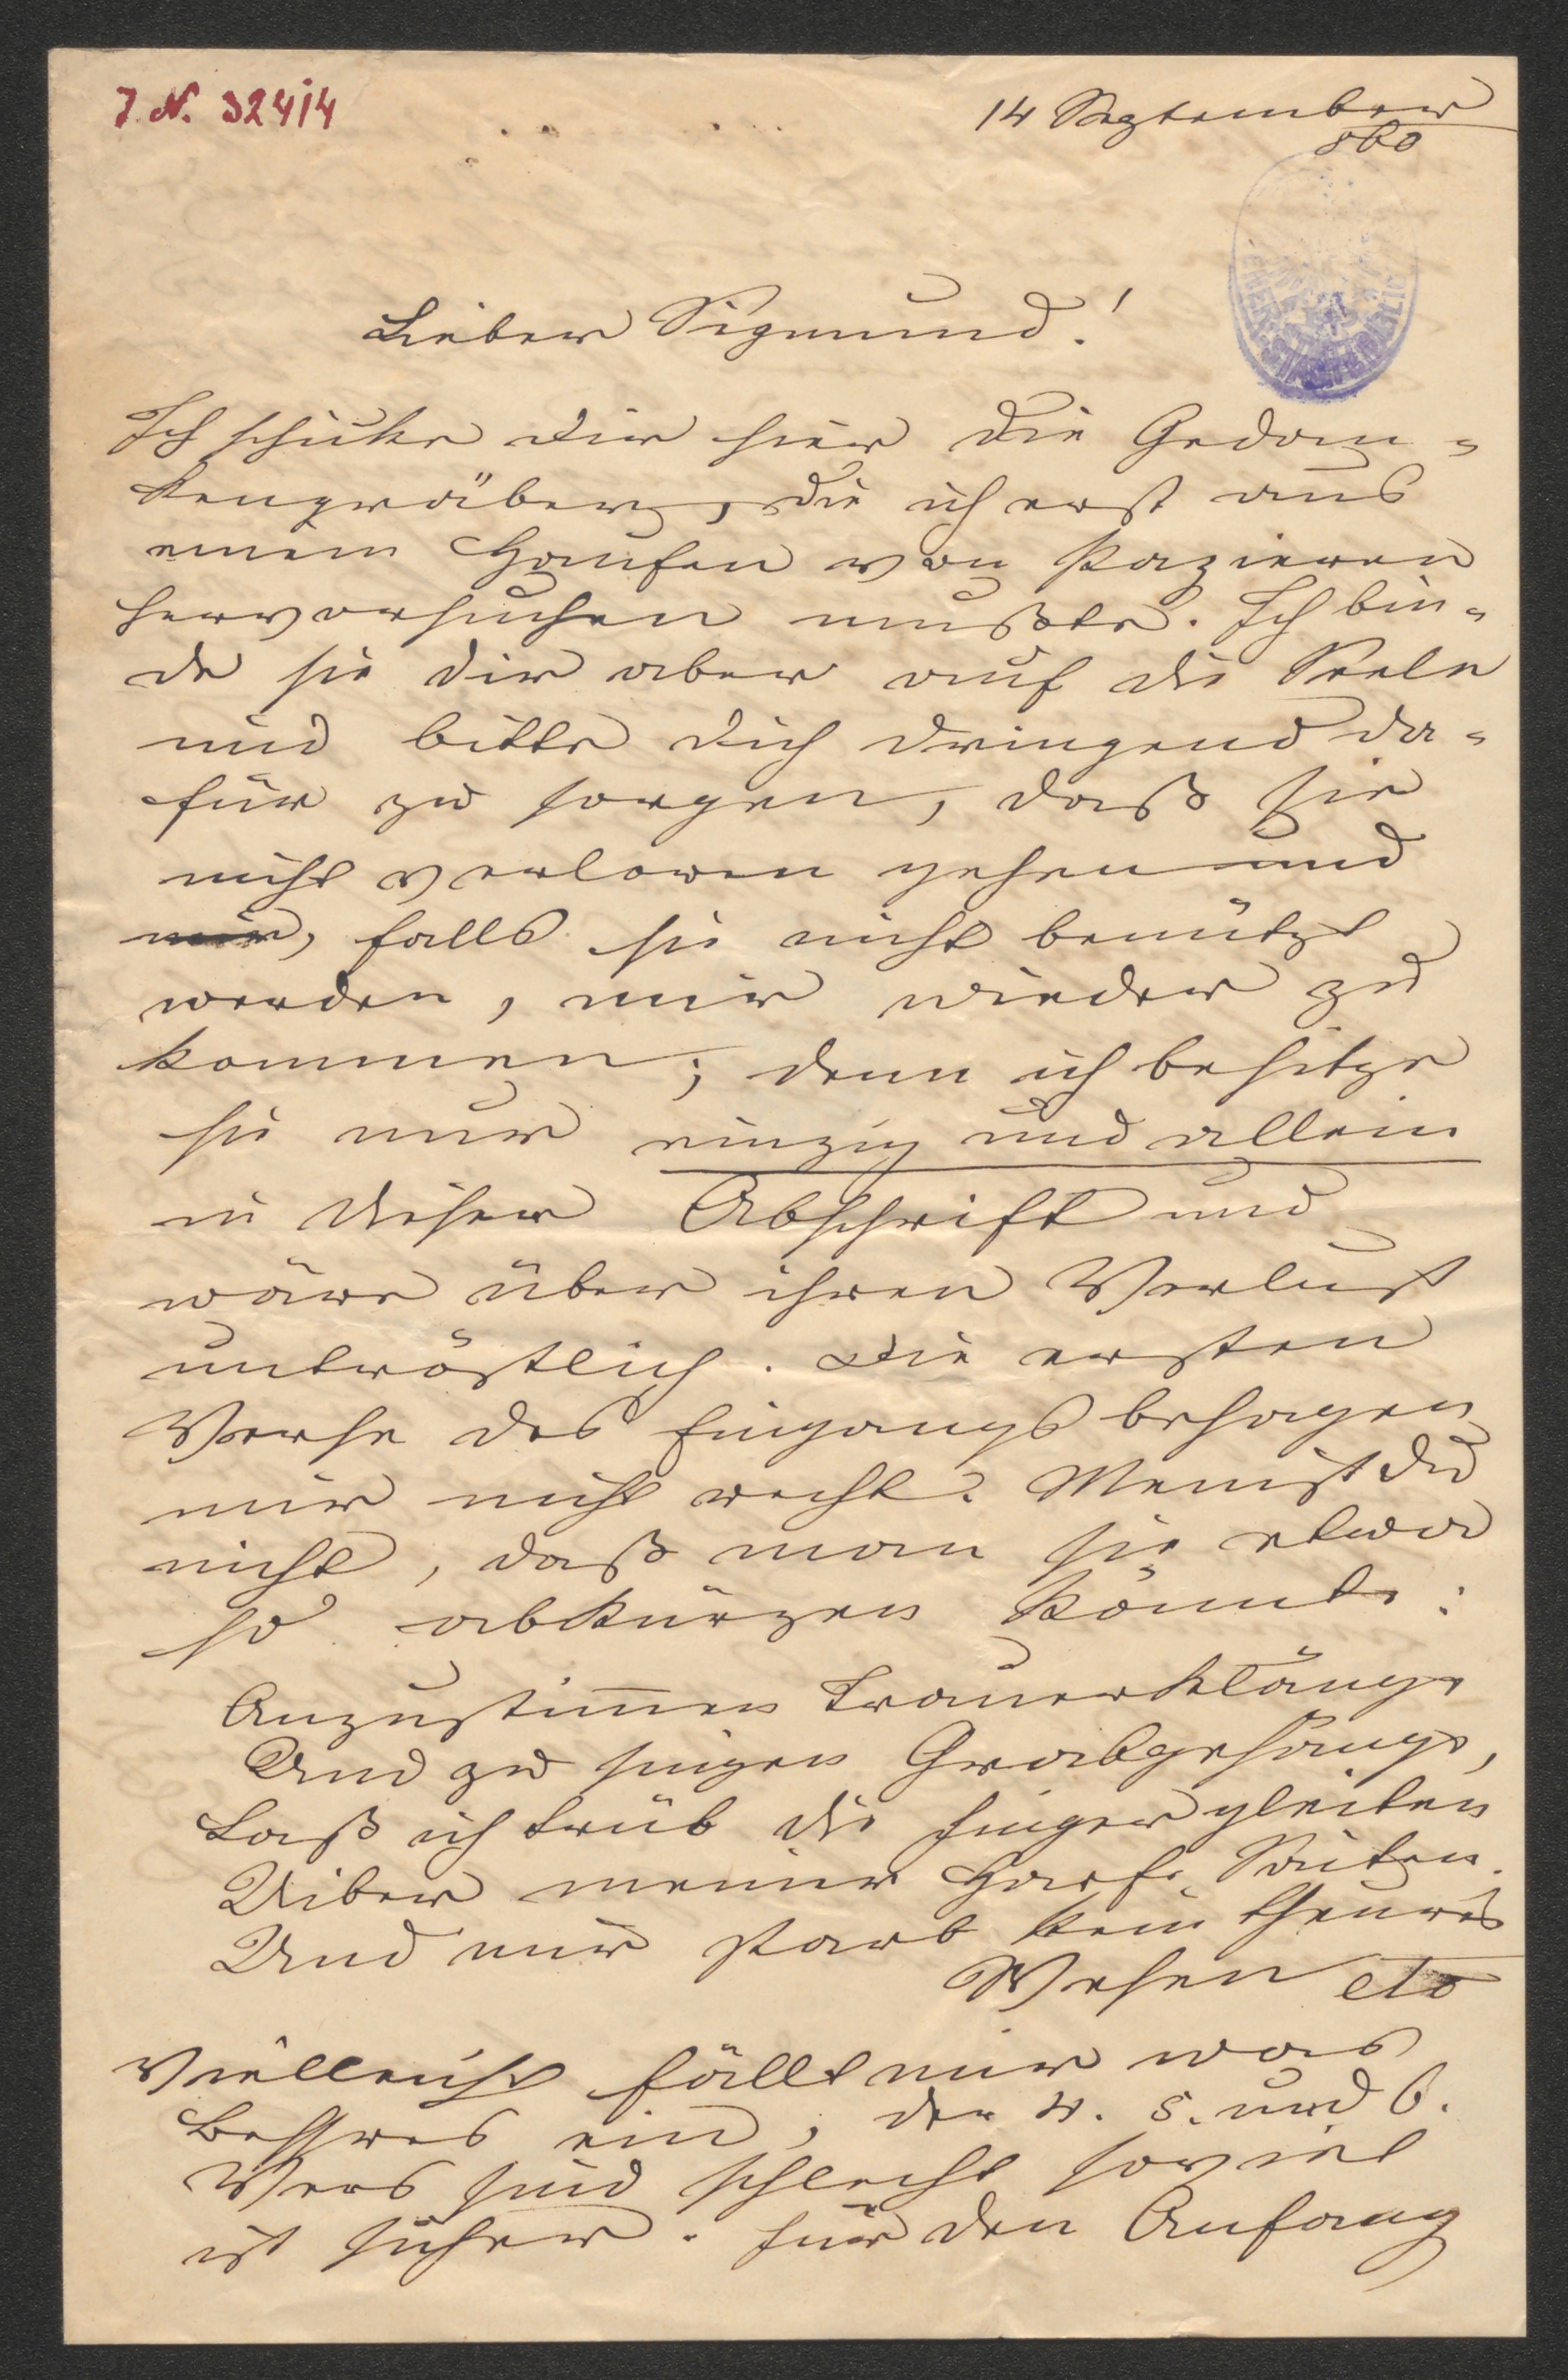 J. N. 32414
14 September
860
Lieber Sigmund!
Ich schicke dir hier die Gedan=
kengräber, die ich erst aus
einem Haufen von Papieren
hervorsuchen mußte. Ich bin=
de sie dir aber auf die Seele
und bitte dich dringend da=
für zu sorgen, daß sie
nicht verloren gehen und
mir, falls sie nicht benützt
werden, mir wieder zu
kommen; denn ich besitze
sie nur einzig und allein
in dieser Abschrift und
wäre über ihren Verlust
untröstlich. Die ersten
Verse des Eingangs behagen
mir nicht recht. Meinst du
nicht, daß man sie etwa
so abkürzen könnte:
Anzustim̅en Trauerklänge
Und zu singen Grabgesänge,
Laß ich trüb die Finger gleiten
Uiber meiner Harfe Saiten.
Und mir starb kein theures
Wesen etc
Vielleicht fällt mir was
Beßres ein, der 4. 5. und 6.
Vers sind schlecht soviel
ist sicher. Für den Anfang